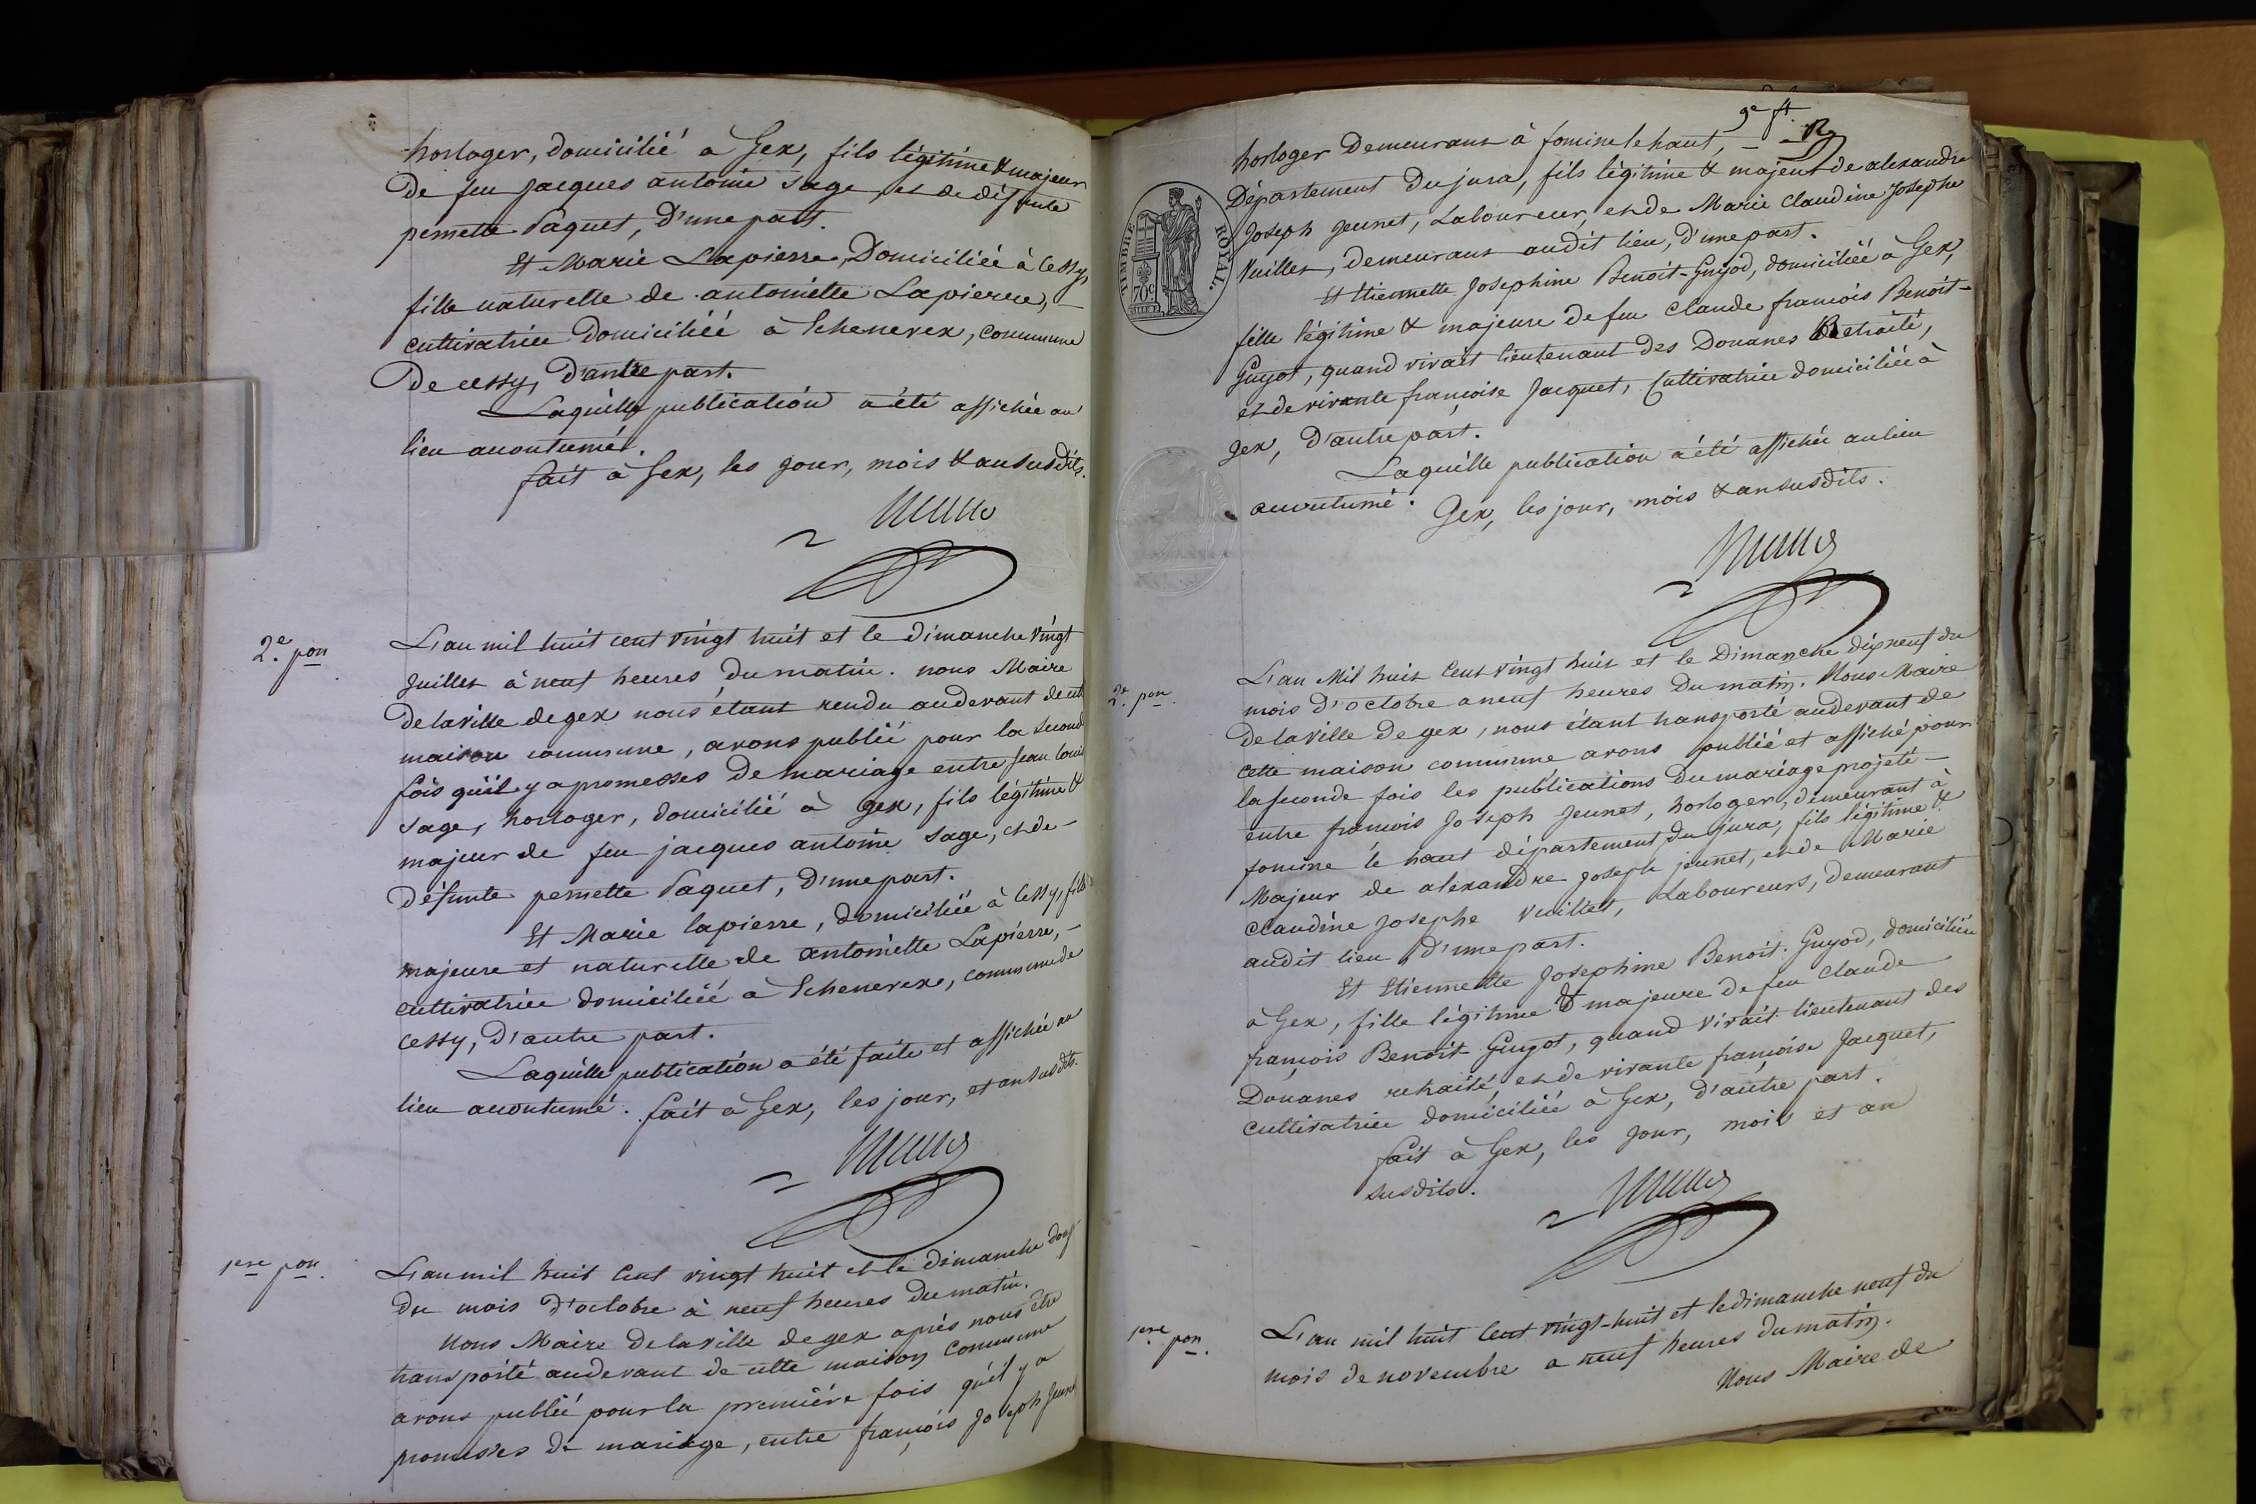 horloger, domicilié à Gex, fils légitime & majeur
De feu jacques antoine sage, et de défunte
pernette Paquet, D'une part.
Et Marie Lapierre, Domiciliée à Cessy,
fille naturelle de antoinette Lapierre, –
cultivatrice domiciliée à Echenevex, commune
De cessy, D'autre part.
Laquelle publication a été affichée au
lieu accoutumé.
fait à Gex, les jour, mois & an susdits.
2.e pon
L'an mil huit cent vingt huit et le dimanche vingt
juillet à neuf heures du matin. nous Maire
De la ville de gex nous étant rendu au devant de cette
maison commune, avons publié pour la seconde
fois qu'il y a promesses De mariage entre jean louis
sage, horloger, domicilié à gex, fils légitime &
majeur de feu jacques antoine sage, et de –
Défunte pernette Paquet, D'une part.
Et Marie lapierre, domiciliée à Cessy, fille
majeure et naturelle de antoinette Lapierre, –
cultivatrice domiciliée à Echenevex, commune de
cessy, D'autre part.
Laquelle publication a été faite et affichée au
lieu accoutumé. fait à Gex, les jour, et an susdits.
1ere pon.
L'an mil huit Cent vingt huit et le dimanche douze
du mois d'octobre à neuf heures du matin.
Nous Maire De la ville de gex après nous être
transporté au devant de cette maison commune
avons publié pour la première fois qu'il y a
promesses de mariage, entre françois joseph Jeunet
9e ft.
horloger Demeurant à foncine le haut, –
TIMBRE ROYAL.
70c
Département Du jura, fils légitime & majeur de alexandre
Joseph Jeunet, Laboureur, et de Marie Claudine Josephe
Vuillet, demeurant audit lieu, D'une part.
Et Etiennette Josephine Benoit-Guyod, domiciliée à Gex,
fille légitime & majeure De feu Claude francois Benoit-
Guyot, quand vivait lieutenant des Douanes Retraité,
et de vivante françoise Jacquet, Cultivatrice domiciliée à
Gex, D'autre part.
Laquelle publication a été affichée au lieu
accoutumé. Gex, les jour, mois & an susdits.
2.e pon.
L'an Mil huit Cent vingt huit et le Dimanche dix neuf du
mois d'octobre a neuf heures Du matin. Nous Maire
De la Ville De gex, nous étant transporté au devant de
cette maison commune avons publié et affiché pour
la seconde fois les publications Du mariage projeté –
entre francois Joseph Jeunet, horloger, demeurant à
foncine le haut département du jura, fils légitime &
Majeur de alexandre joseph jeunet, et de Marie
Claudine Josephe Vuillet, Laboureurs, demeurant
audit lieu D'une part.
Et Etiennette Josephine Benoit. Guyod, domiciliée
à Gex, fille légitime & majeure De feu Claude
françois Benoit-Guyot, quand vivait lieutenant des
Douanes retraité, et de vivante françoise Jacquet,
cultivatrice domiciliée à Gex, d'autre part.
fait à Gex, les jour, mois et an
susdits.
1ere pon.
L'an mil huit Cent vingt-huit et le dimanche neuf du
mois de novembre a neuf heures du matin.
Nous Maire de